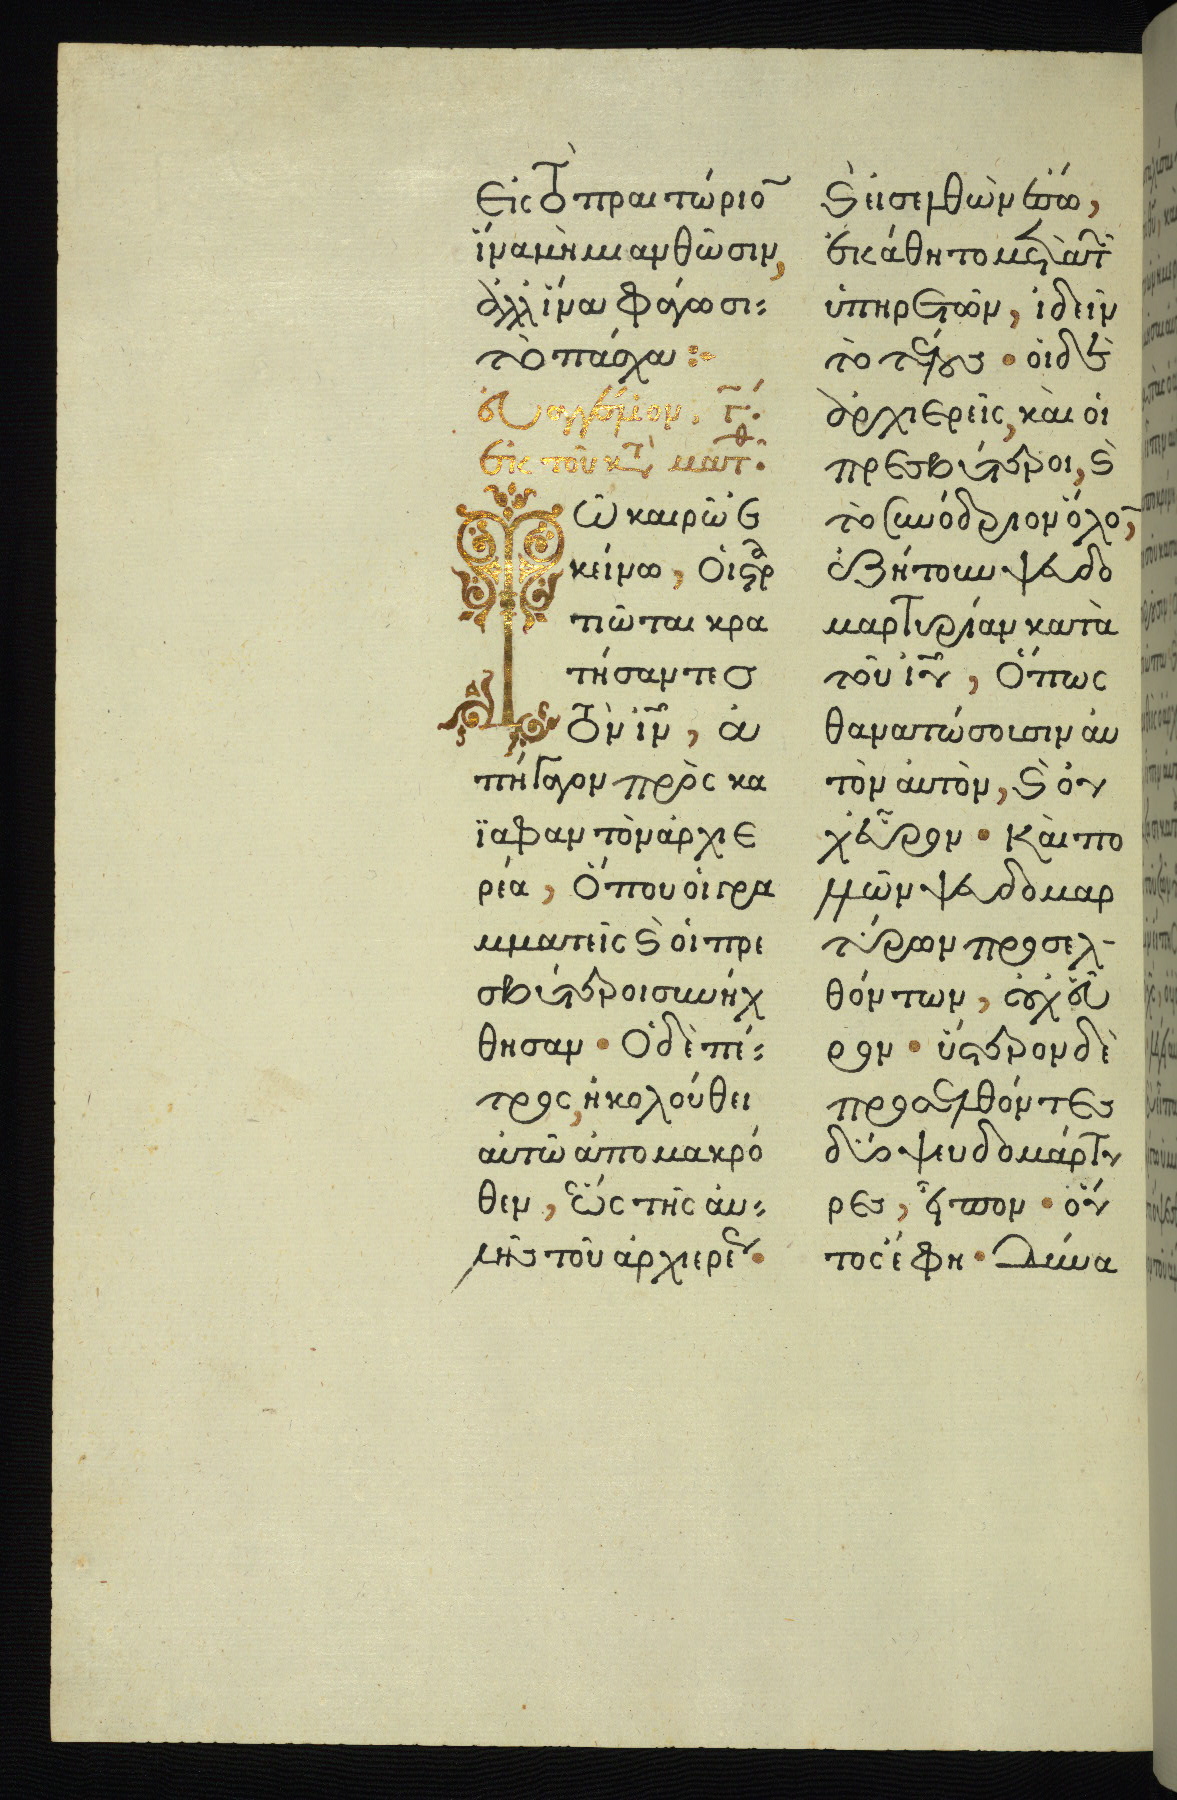 εἰς τὸ πραιτώριο̅
ἵνα μὴ μιανθῶσιν,
ἀλλ ἵνα φάγωσι=
τὸ πάσχα :·
ἐυαγγέλιον. Γ̅.
ἐκ τοῦ κτ̀ μα̅τθ.
Τῶ καιρῶ ἐ
κείνω, Οἱ στρ
τιῶται κρα
τήσαντες
τὸν ἰν̅, ἀ
πήγαγον πρὸς κα
ϊαφαν τὸν ἀρχιε
ρέα, Ὅπου οἱ γρα
μματεῖς ϗ οἱ πρε
σβύτεροι συνήχ
θησαν · Ὁ δὲ πέ=
τρος, ἠκολούθει
αὐτῶ ἀπο μακρό
θεν, ἕως τῆς ἀυ=
λῆς τοῦ ἀρχιερέως·
ϗ εἰσελθὼν ἔσω,
ἐκάθητο μετὰ τῶν
ὑπηρετῶν, ἰδεῖν
τὸ τέλος · οἱ δὲ
ἀρχιερεῖς, καὶ οἱ
πρεσβύτεροι, ϗ
τὸ συνέδριον ὅλο̅,
ἐζήτουν ψευδο
μαρτυρίαν κατὰ
τοῦ ἰυ̅, Ὅπως
θανατώσουσιν ἀυ
τὸν ἀυτὸν, ϗ οὐ
χ̓ εὗρον · Καὶ πο
λλῶν ψευδομαρ
τύρων προσελ-
θόντων, οὐχ̓ εὗ
ρον · ὕστερον δὲ
προσελθόντες
δύο ψευδομάρτυ
ρες, εἶπον · οὗ
τος ἔφη · Δύνα